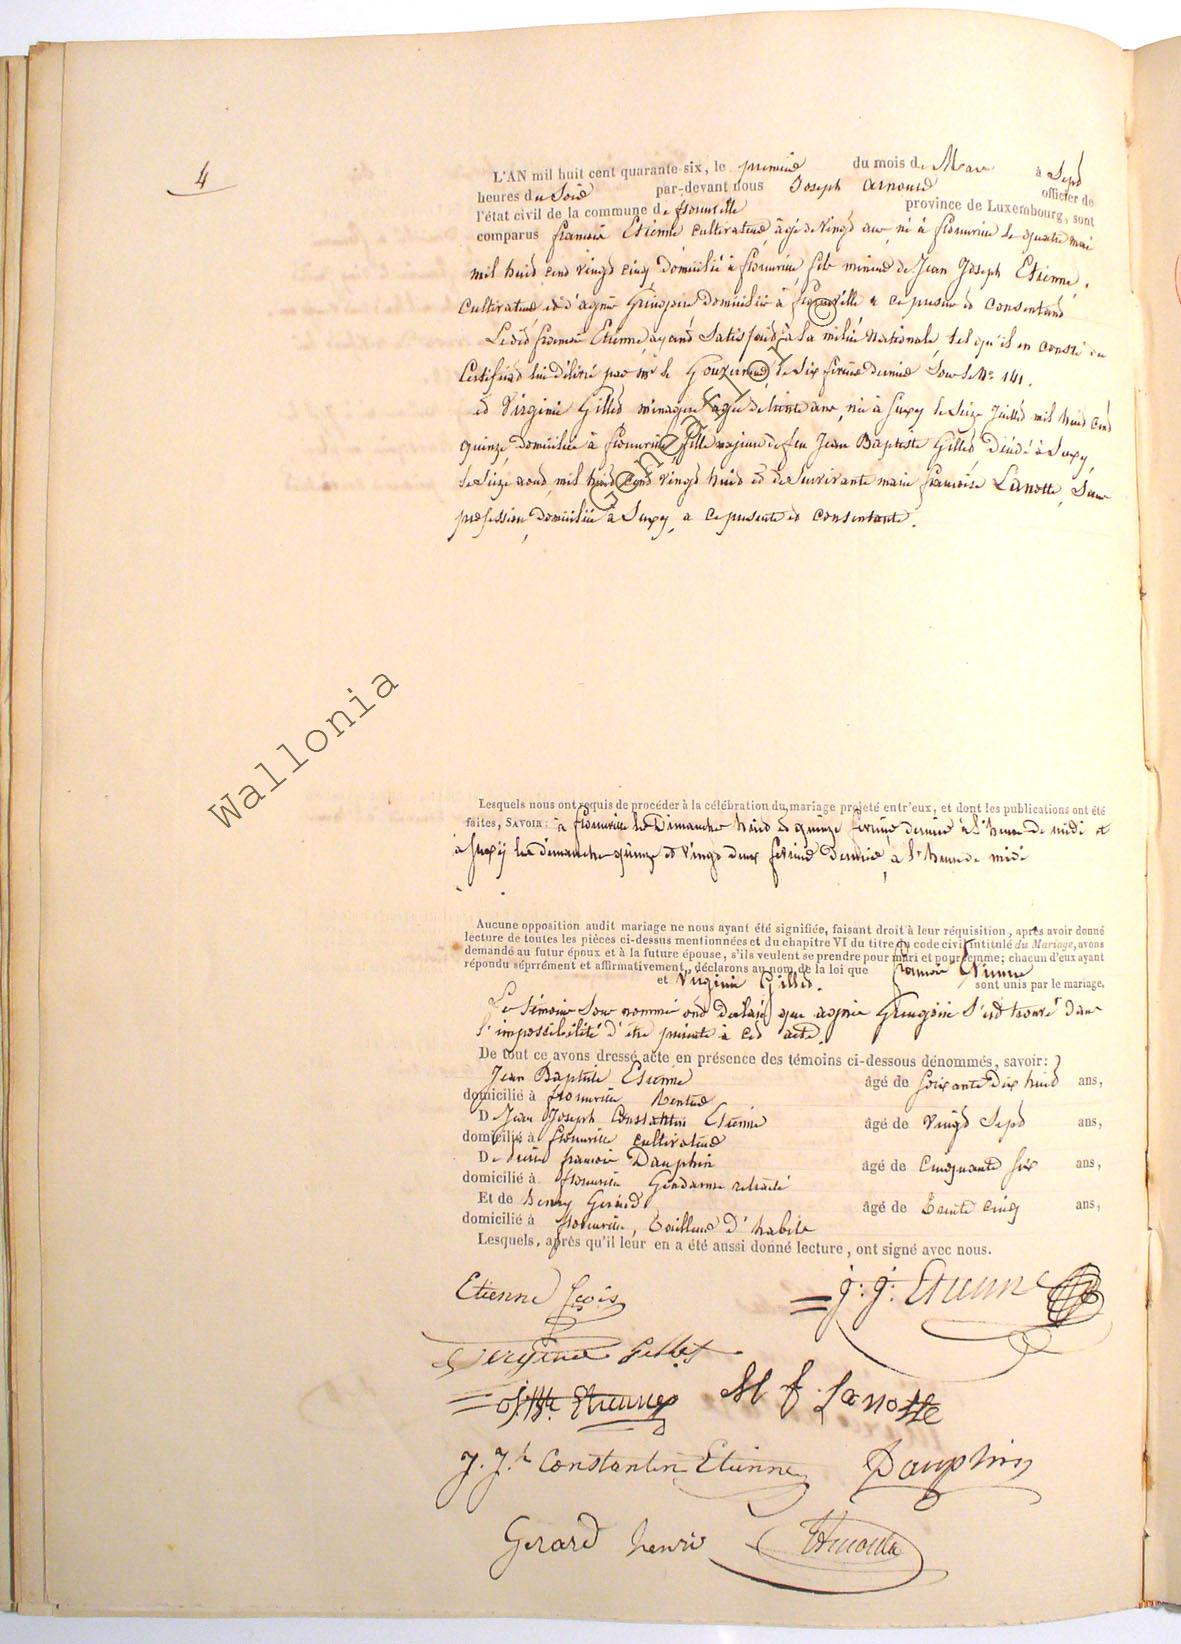 4
L'AN mil huit cent quarante-six, le premier du mois de Mars à Sept
heures du Soir par-devant nous Joseph Arnould officier de
l'état civil de la commune de florenville province de Luxembourg, sont
comparus françois Etienne cultivateur, âgé de vingt ans, né à florenville le quatre mai
mil huit cent vingt cinq domicilié à florenville, fils mineur de Jean Joseph Etienne,
cultivateur et d'agnès domicilié à florenville à ce présent et consentant
Le dit françois Etienne, ayant Satisfait à la milice Nationale, tel qu'il en conste du
Certificat lui délivré par Mr le Gouverneur, le Six février dernier Sous le No 141.
et Virginie Gillet ménagère agée de trente ans, née à Suxy le Seize Juillet mil huit cent
quinze domiciliée à florenville, fille majeure de feu Jean Baptiste Gillet à Suxy,
le Seize aout mil huit cent vingt huit et de Survivante marie françoise Lanotte, Sans
profession, domiciliée à Suxy, à ce présente et consentante.
Lesquels nous ont requis de procéder à la célébration du mariage projeté entr'eux, et dont les publications ont été
faites, SAVOIR : à florenville les Dimanches huit et quinze février dernier à l'heure de midi et
à Suxy les dimanches quinze et vingt deux février dernier, à l'heure de midi
Aucune opposition audit mariage ne nous ayant été signifiée, faisant droit à leur réquisition, après avoir donné
lecture de toutes les pièces ci-dessus mentionnées et du chapitre VI du titre du code civil intitulé du Mariage, avons
demandé au futur époux et à la future épouse, s'ils veulent se prendre pour mari et pour femme; chacun d'eux ayant
répondu séprrément et affirmativement, déclarons au nom de la loi que françois Etienne
et Virginie Gillet. sont unis par le mariage.
Les témoins Sous nommés ont déclaré que agnès S'est trouvé dans
l'impossibilité d'être présente à cet acte.
De tout ce avons dressé acte en présence des témoins ci-dessous dénommés, savoir :
Jean Baptiste Etienne âgé de Soixante Dix huit ans,
domicilié à florenville Rentier
D Jean Joseph Constantin Etienne âgé de vingt Sept ans,
domicilié à florenville cultivateur
De françois Dauphin âgé de Cinquante Six ans,
domicilié à florenville Gendarme retraité
Et de henry Gérard âgé de trente cinq ans,
domicilié à florenville, tailleur d'habits
Lesquels, après qu'il leur en a été aussi donné lecture, ont signé avec nous.
Etienne fçois J: J: Etienne
Vergenie Gillet
J. Bte. Etienne M f Lanotte
J. J.h Constantin Etienne Dauphin
Gerard henri JArnould
Wallonia
Geneanet.org ©